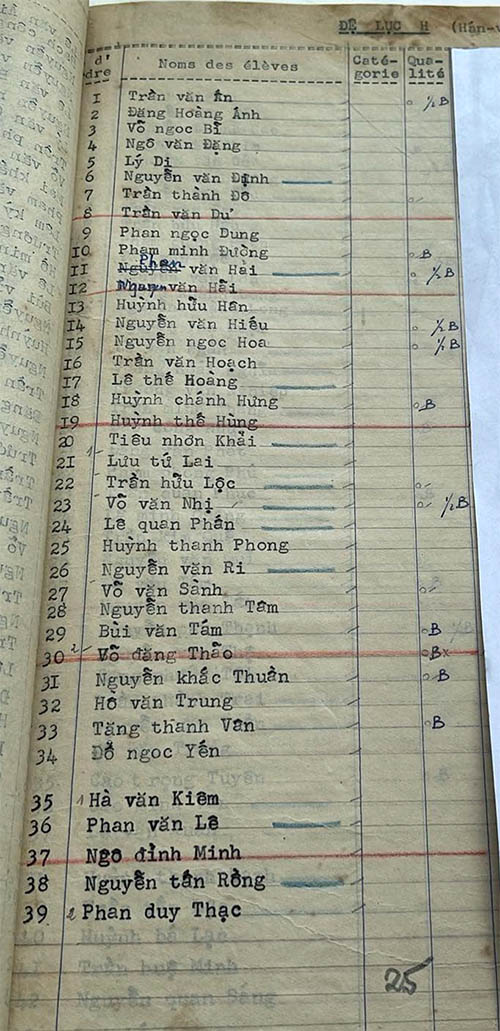 ĐỆ LỤC H (Hán-v
d'
dre Noms des élèves Caté-
gorie Qua-
lité
1 Trần văn Ấn ½ B
2 Đặng Hoàng Ánh
3 Võ ngoc Bỉ
4 Ngô văn Đặng
5 Lý Di
6 Nguyễn văn Định
7 Trần thành Đô
8 Trần văn Dư
9 Phan ngọc Dung
10 Phạm minh Đường B
11 Nguyễn Phan văn Hải ½ B
12 văn Hải
13 Huỳnh hữu Hân
14 Nguyễn văn Hiếu ½ B
15 Nguyễn ngoc Hoa ½ B
16 Trần văn Hoạch
17 Lê thế Hoàng
18 Huỳnh chánh Hưng B
19 Huỳnh thế Hùng
20 Tiêu nhơn Khải
21 Lưu tứ Lai
22 Trần hữu Lộc
23 Võ văn Nhị ½ B
24 Lê quan Phán
25 Huỳnh thanh Phong
26 Nguyễn văn Ri
27 Võ văn Sành
28 Nguyễn thanh Tâm
29 Bùi văn Tám B
30 Võ đăng Thão Bx
31 Nguyễn khắc Thuần B
32 Hồ văn Trung
33 Tăng thanh Vân B
34 Đỗ ngoc Yến
Cao trong Tuyến
35 Hà văn Kiêm
36 Phan văn Lê
37 Ngô đình Minh
38 Nguyễn tấn Rồng
39 Phan duy Thạc
25